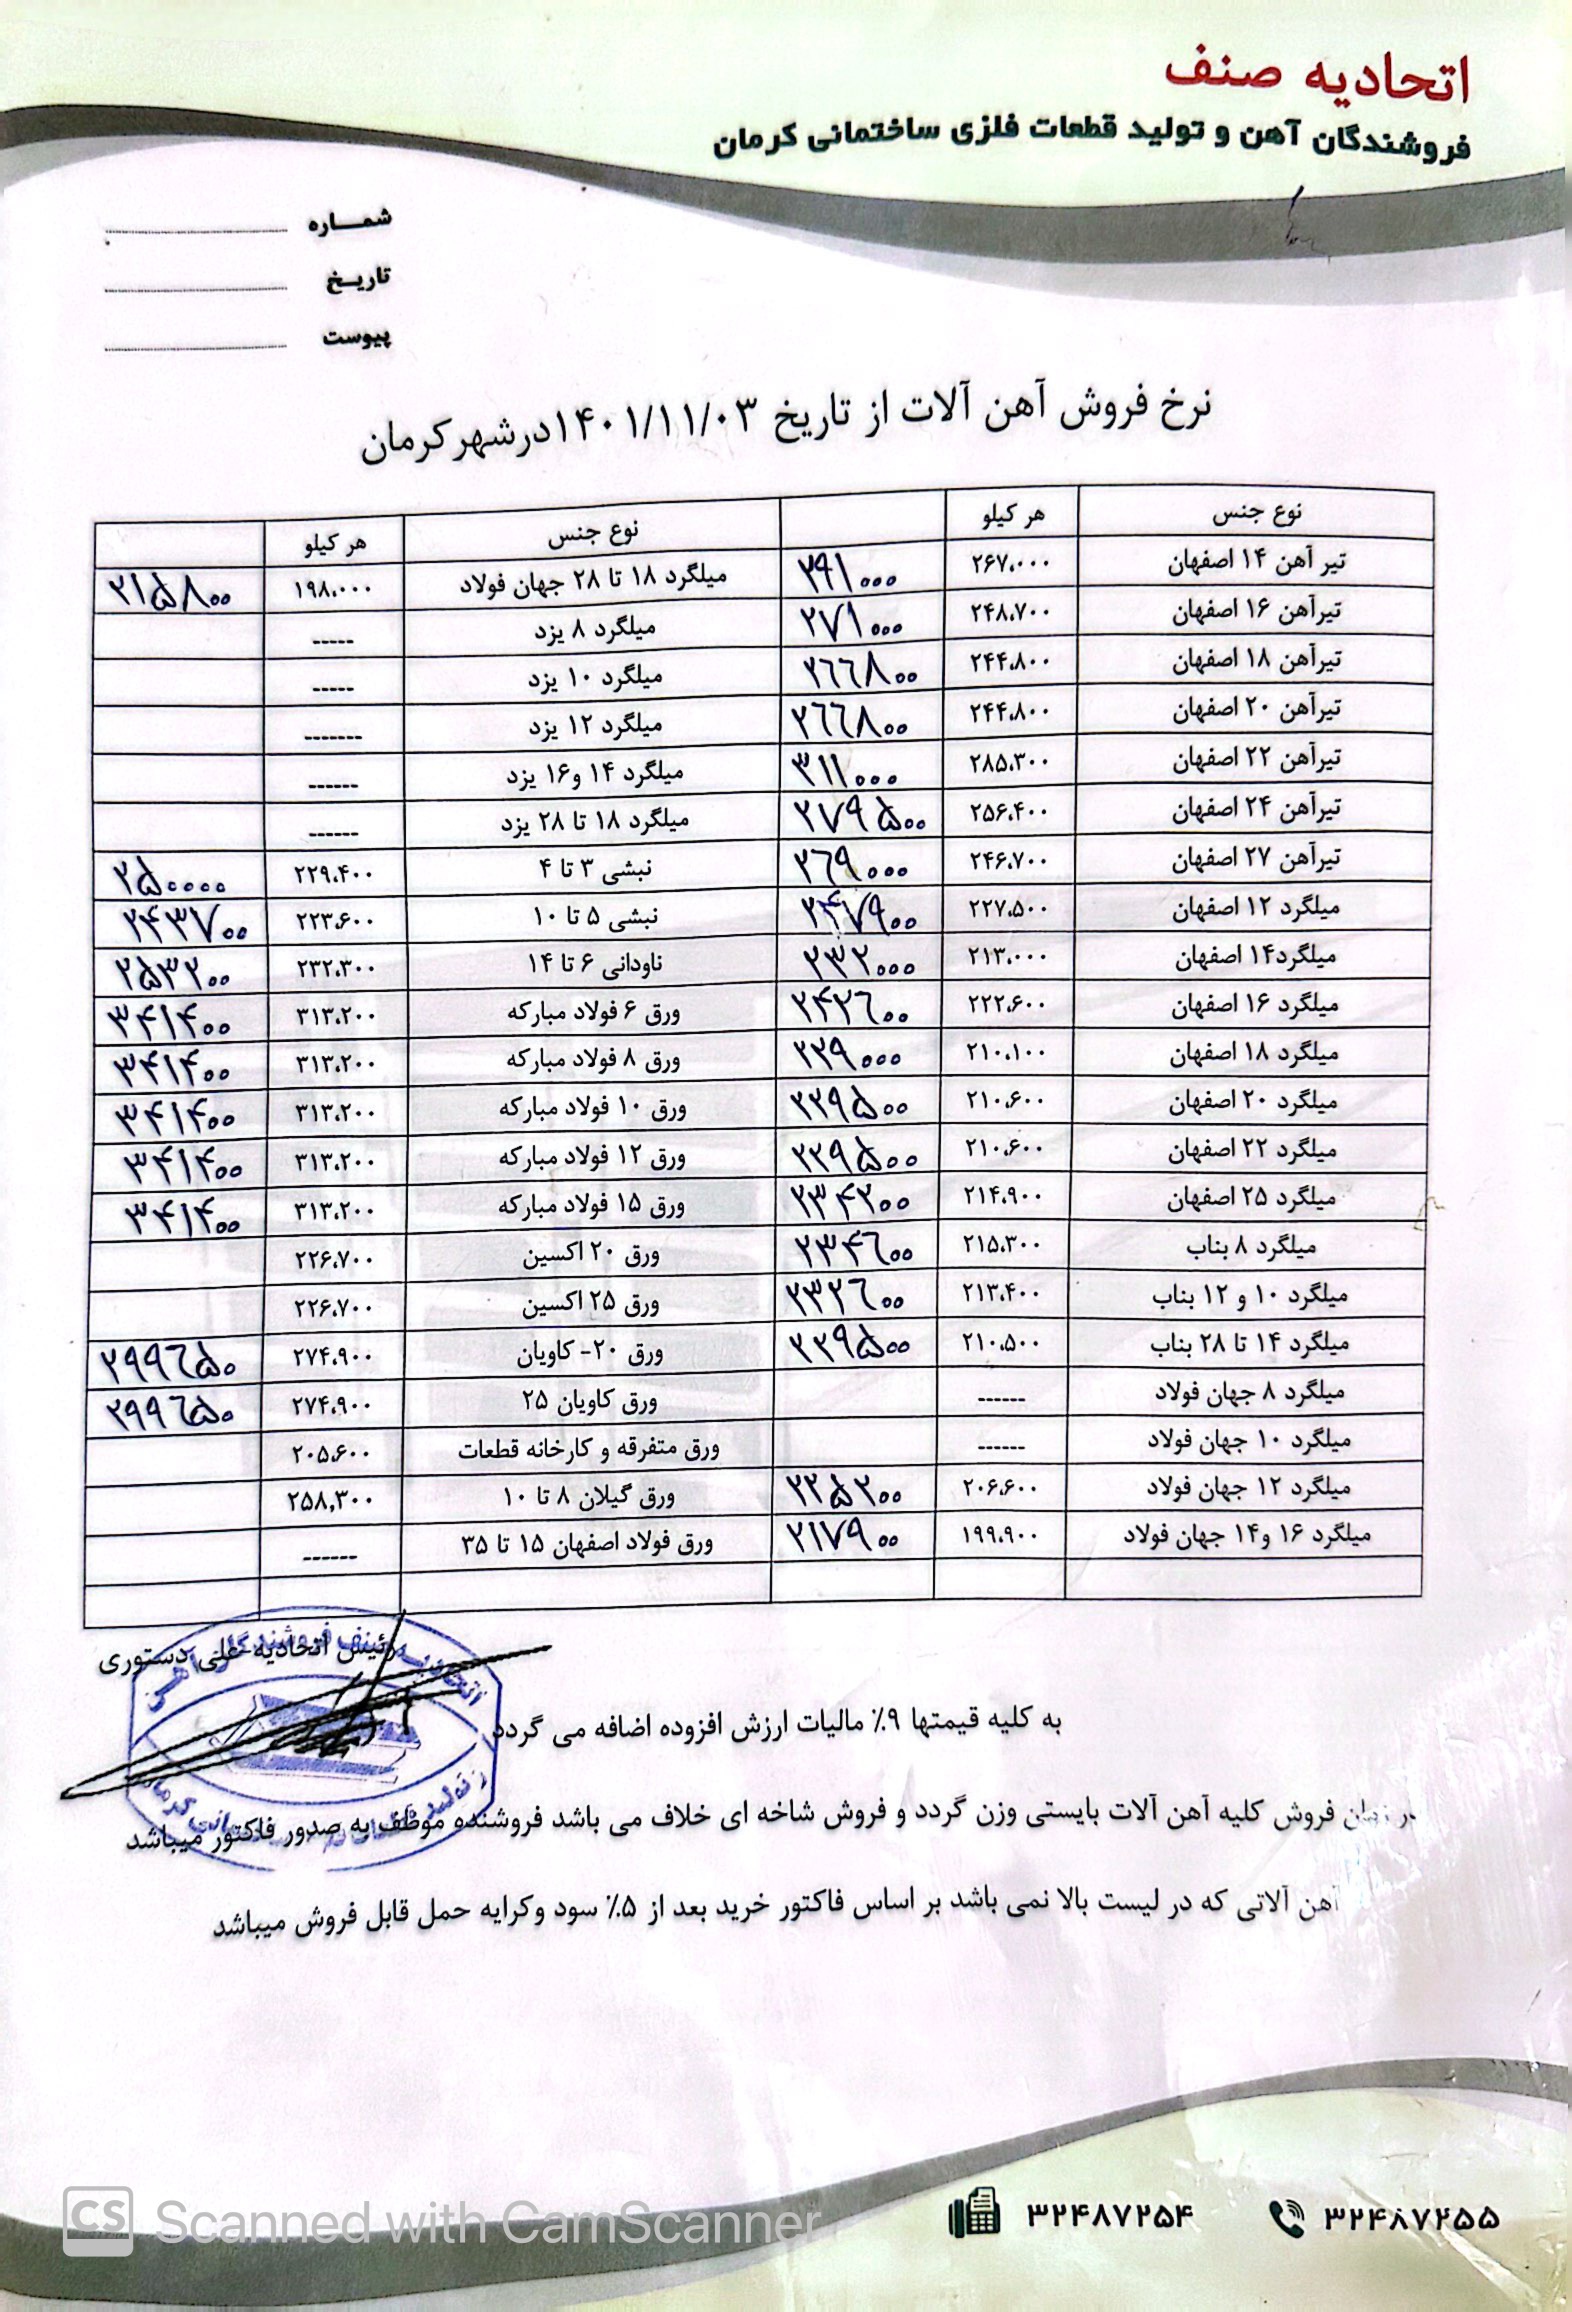 اتحادیه صنف
فروشندگان آهن و تولید قطعات فلزی ساختمانی کرمان
شمـــاره
تاریـخ
پیوست
نرخ فروش آهن آلات از تاریخ ۱۴۰۱/۱۱/۰۳درشهرکرمان
نوع جنس هر کیلو نوع جنس هر کیلو
تیر آهن ۱۴ اصفهان ۲۶۷،۰۰۰ ۲۹۱۰۰۰ میلگرد ۱۸ تا ۲۸ جهان فولاد ۱۹۸،۰۰۰ ۲۱۵۸۰۰
تیرآهن ۱۶ اصفهان ۲۴۸،۷۰۰ ۲۷۱۰۰۰ میلگرد ۸ یزد -----
تیرآهن ۱۸ اصفهان ۲۴۴،۸۰۰ ۲۶۶۸۰۰ میلگرد ۱۰ یزد -----
تیرآهن ۲۰ اصفهان ۲۴۴،۸۰۰ ۲۶۶۸۰۰ میلگرد ۱۲ یزد -------
تیرآهن ۲۲ اصفهان ۲۸۵،۳۰۰ ۳۱۱۰۰۰ میلگرد ۱۴ و۱۶ یزد ------
تیرآهن ۲۴ اصفهان ۲۵۶،۴۰۰ ۲۷۹۵۰۰ میلگرد ۱۸ تا ۲۸ یزد ------
تیرآهن ۲۷ اصفهان ۲۴۶،۷۰۰ ۲۶۹۰۰۰ نبشی ۳ تا ۴ ۲۲۹،۴۰۰ ۲۵۰۰۰۰
میلگرد ۱۲ اصفهان ۲۲۷،۵۰۰ ۲۴۷۹۰۰ نبشی ۵ تا ۱۰ ۲۲۳،۶۰۰ ۲۴۳۷۰۰
میلگرد۱۴ اصفهان ۲۱۳،۰۰۰ ۲۳۲۰۰۰ ناودانی ۶ تا ۱۴ ۲۳۲،۳۰۰ ۲۵۳۲۰۰
میلگرد ۱۶ اصفهان ۲۲۲،۶۰۰ ۲۴۲۶۰۰ ورق ۶ فولاد مبارکه ۳۱۳،۲۰۰ ۳۴۱۴۰۰
میلگرد ۱۸ اصفهان ۲۱۰،۱۰۰ ۲۲۹۰۰۰ ورق ۸ فولاد مبارکه ۳۱۳،۲۰۰ ۳۴۱۴۰۰
میلگرد ۲۰ اصفهان ۲۱۰،۶۰۰ ۲۲۹۵۰۰ ورق ۱۰ فولاد مبارکه ۳۱۳،۲۰۰ ۳۴۱۴۰۰
میلگرد ۲۲ اصفهان ۲۱۰،۶۰۰ ۲۲۹۵۰۰ ورق ۱۲ فولاد مبارکه ۳۱۳،۲۰۰ ۳۴۱۴۰۰
میلگرد ۲۵ اصفهان ۲۱۴،۹۰۰ ۲۳۴۲۰۰ ورق ۱۵ فولاد مبارکه ۳۱۳،۲۰۰ ۳۴۱۴۰۰
میلگرد ۸ بناب ۲۱۵،۳۰۰ ۲۳۴۶۰۰ ورق ۲۰ اکسین ۲۲۶،۷۰۰
میلگرد ۱۰ و ۱۲ بناب ۲۱۳،۴۰۰ ۲۳۲۶۰۰ ورق ۲۵ اکسین ۲۲۶،۷۰۰
میلگرد ۱۴ تا ۲۸ بناب ۲۱۰،۵۰۰ ۲۲۹۵۰۰ ورق ۲۰- کاویان ۲۷۴،۹۰۰ ۲۹۹۶۵۰
میلگرد ۸ جهان فولاد ------ ورق کاویان ۲۵ ۲۷۴،۹۰۰ ۲۹۹۶۵۰
میلگرد ۱۰ جهان فولاد ------ ورق متفرقه و کارخانه قطعات ۲۰۵،۶۰۰
میلگرد ۱۲ جهان فولاد ۲۰۶،۶۰۰ ۲۲۵۲۰۰ ورق گیلان ۸ تا ۱۰ ۲۵۸,۳۰۰
میلگرد ۱۶ و۱۴ جهان فولاد ۱۹۹،۹۰۰ ۲۱۷۹۰۰ ورق فولاد اصفهان ۱۵ تا ۳۵ ------
رئیس اتحادیه-علی دستوری
به کلیه قیمتها ۹٪ مالیات ارزش افزوده اضافه می گردد
در زمان فروش کلیه آهن آلات بایستی وزن گردد و فروش شاخه ای خلاف می باشد فروشنده موظف به صدور فاکتور میباشد
آهن آلاتی که در لیست بالا نمی باشد بر اساس فاکتور خرید بعد از ۵٪ سود وکرایه حمل قابل فروش میباشد
۳۲۴۸۷۲۵۵ ۳۲۴۸۷۲۵۴
CS Scanned with CamScanner